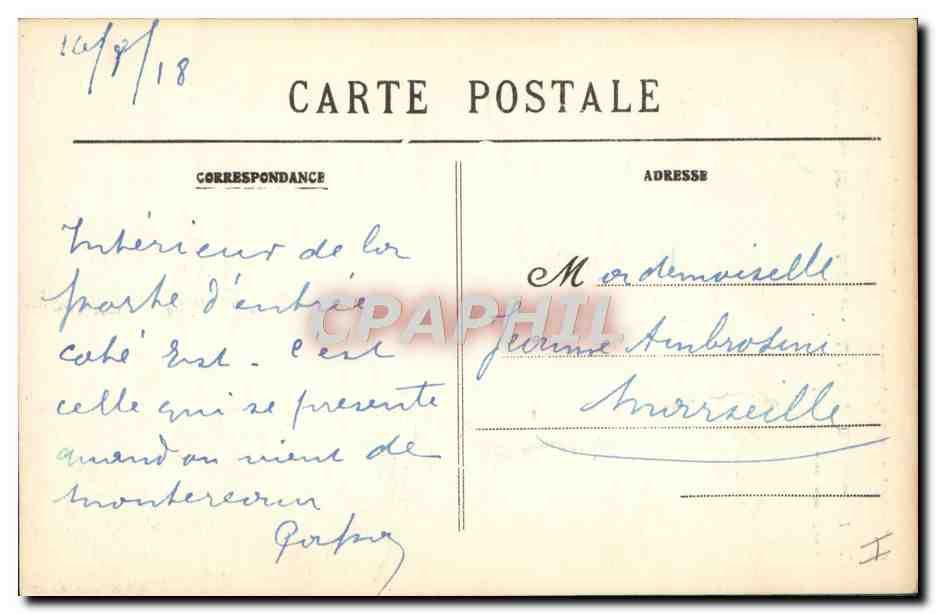 16/8/18
CARTE POSTALE
CORRESPONDANCE
Intérieur de la
porte d'entrée
coté Est - C'est
celle qui se présente
quand on vient de
Montereau
Papa
ADRESSE
Mademoiselle
Jeanne Ambrosini
Marseille
CPAPHIL
I